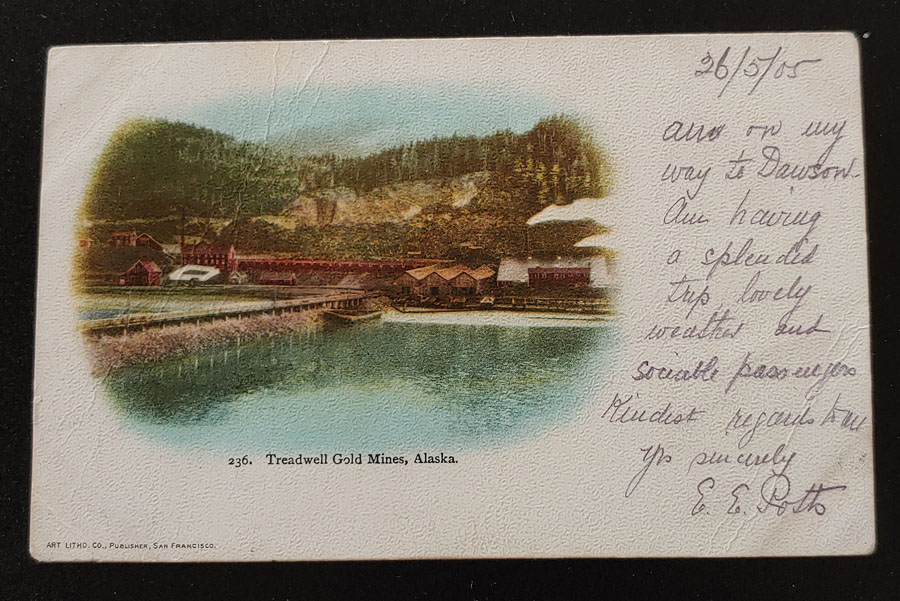 26/5/05
am on my
way to Dawson.
Am having
a splendid
trip, lovely
weather and
sociable passengers
Kindest regards to all
Yrs sincerely
E. E. Potts
236. Treadwell Gold Mines, Alaska.
ART LITHO. CO., PUBLISHER, SAN FRANCISCO.